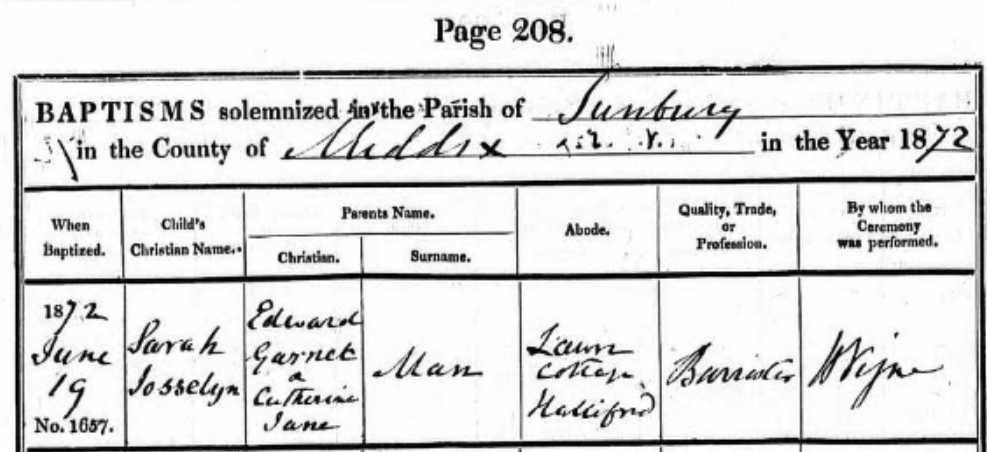 Page 208.
BAPTISMS solemnized in the Parish of Sunbury
in the County of Middsx in the Year 1872
When Baptized.
Child's Christian Name.
Parents Name.
Christian.
Surname.
Abode.
Quality, Trade, or Profession.
By whom the Ceremony was performed.
1872
June
19
No. 1657.
Sarah
Josselyn
Edward
Garnet
&
Catherine
Jane
Man
Lawn
Cottage
Halliford
Barrister